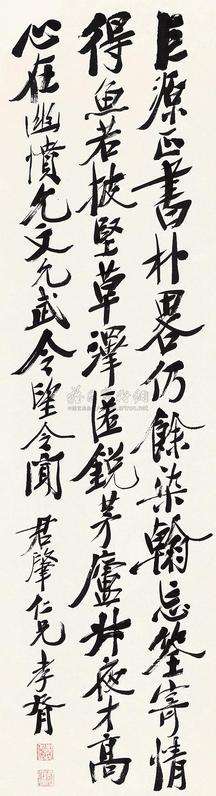 巨源正書朴畧仍餘染翰忘筌寄情
得魚若披堅草澤匿銳茅廬叔夜才高
心在幽憤允文允武令望令聞
君肇仁兄 孝胥